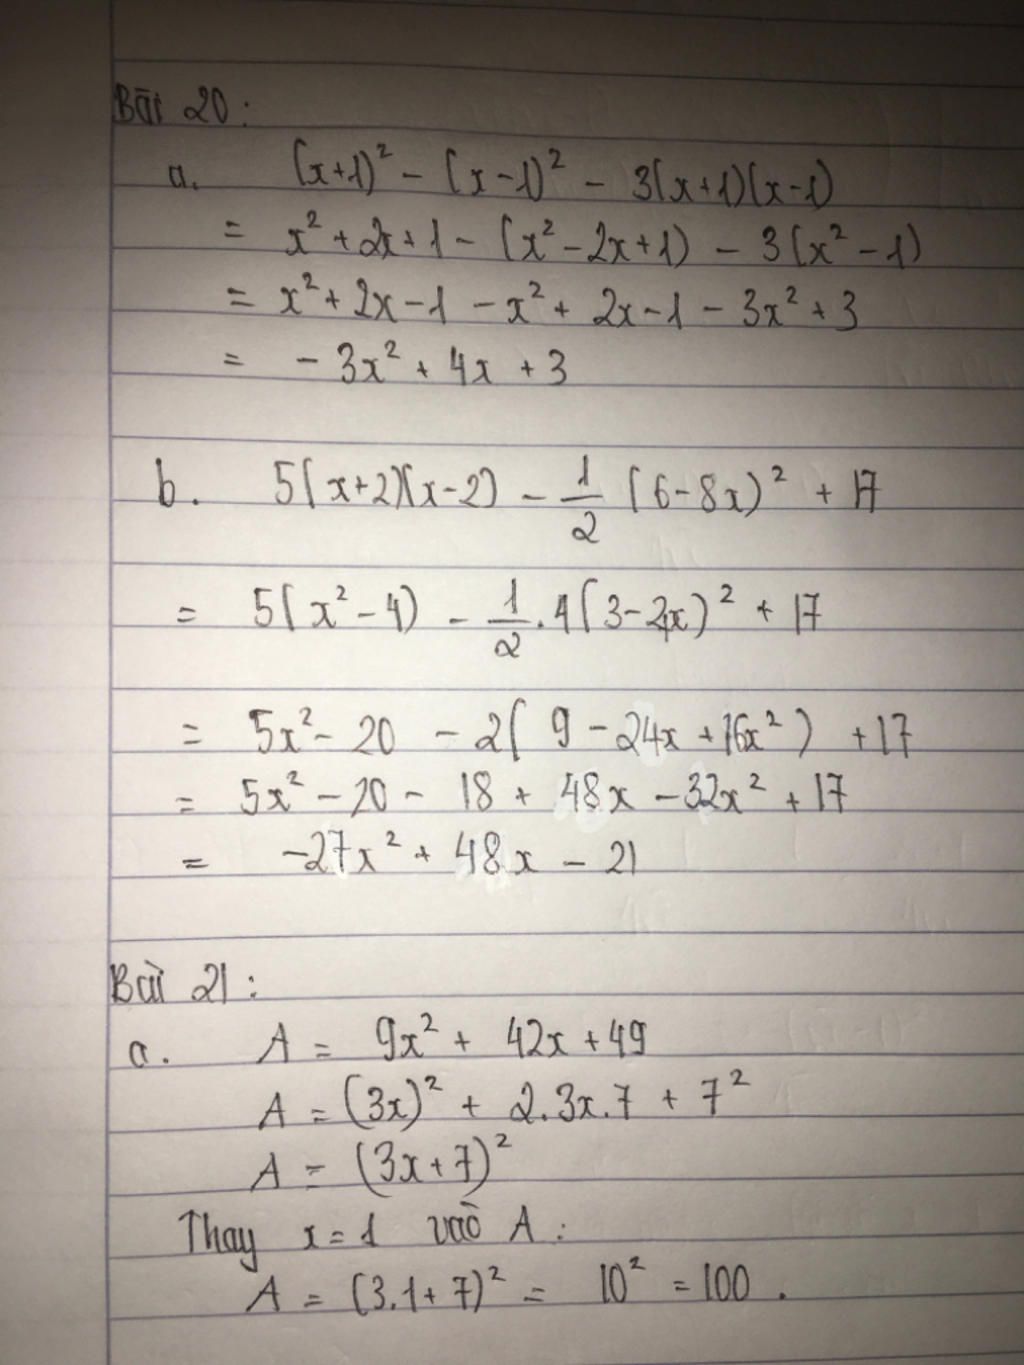 Bài 20:
a. (x+1)² - (x-1)² - 3(x+1)(x-1)
= x² + 2x + 1 - (x² - 2x + 1) - 3(x² - 1)
= x² + 2x - 1 - x² + 2x - 1 - 3x² + 3
= - 3x² + 4x + 3
b. 5(x+2)(x-2) - 1/2 (6-8x)² + 17
= 5(x² - 4) - 1/2 . 4(3-4x)² + 17
= 5x² - 20 - 2(9 - 24x + 16x²) + 17
= 5x² - 20 - 18 + 48x - 32x² + 17
= -27x² + 48x - 21
Bài 21:
a. A = 9x² + 42x + 49
A = (3x)² + 2.3x.7 + 7²
A = (3x+7)²
Thay x = 1 vào A:
A = (3.1+7)² = 10² = 100.